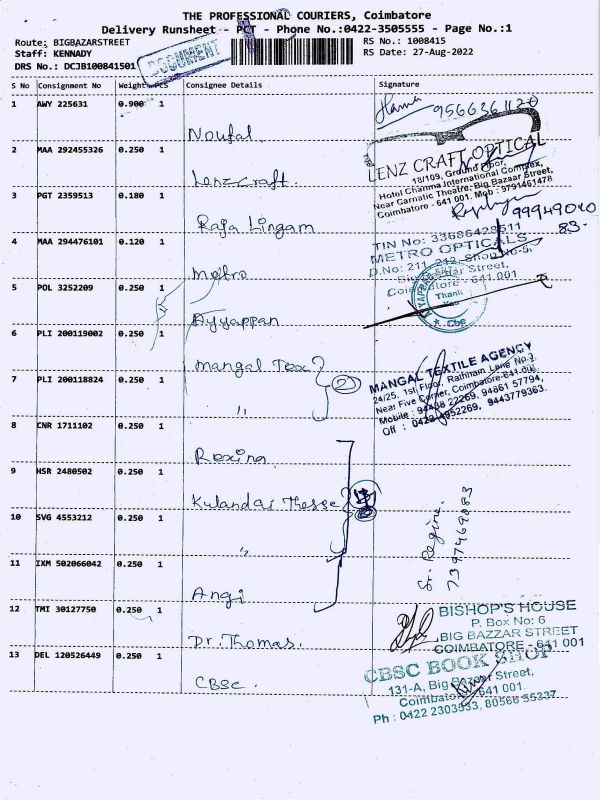 THE PROFESSIONAL COURIERS, Coimbatore
Delivery Runsheet - PCT - Phone No.:0422-3505555 - Page No.:1
Route: BIGBAZARSTREET
Staff: KENNADY
DRS No.: DCJB100841501
DOCUMENT
RS No.: 1008415
RS Date: 27-Aug-2022
S No Consignment No Weight Pcs Consignee Details Signature
1 AWY 225631 0.900 1 Noufal 9566361120
2 MAA 292455326 0.250 1 Lenzcraft.
LENZ CRAFT OPTICAL
18/109, Ground Floor,
Hotel Channma International Complex,
Near Carnatic Theatre, Big Bazaar Street,
Coimbatore - 641 001. Mob : 9791461478
3 PGT 2359513 0.180 1 Raja Lingam
83.
4 MAA 294476101 0.120 1 Metro
TIN No: 33686428511
METRO OPTICALS
D.No: 211, 212, Shop No-5,
Street,
641.001
5 POL 3252209 0.250 1 Ayyappan
Thank
You
Cbe
6 PLI 200119002 0.250 1 Mangal Tex 2
7 PLI 200118824 0.250 1 "
MANGAL TEXTILE AGENCY
24/25, 1st Floor, Rathinam Lane No.3,
Near Five Corner, Coimbatore-641 001
Mobile : 94438 22269, 94861 57794,
Off : 0422 4952269, 9443779363.
8 CNR 1711102 0.250 1 Rexina
9 HSR 2480502 0.250 1 Kulandai
10 SVG 4553212 0.250 1 "
St. Regine.
7397469083
11 IXM 502066042 0.250 1 Angi
12 TMI 30127750 0.250 1 Dr. Thomas.
BISHOP'S HOUSE
P. Box No: 6
BIG BAZZAR STREET
COIMBATORE - 641 001
13 DEL 120526449 0.250 1 CBSC.
CBSC BOOK SHOP
131-A, Big Bazaar Street,
Coimbatore 641 001.
Ph : 0422 2303533, 80566 55237